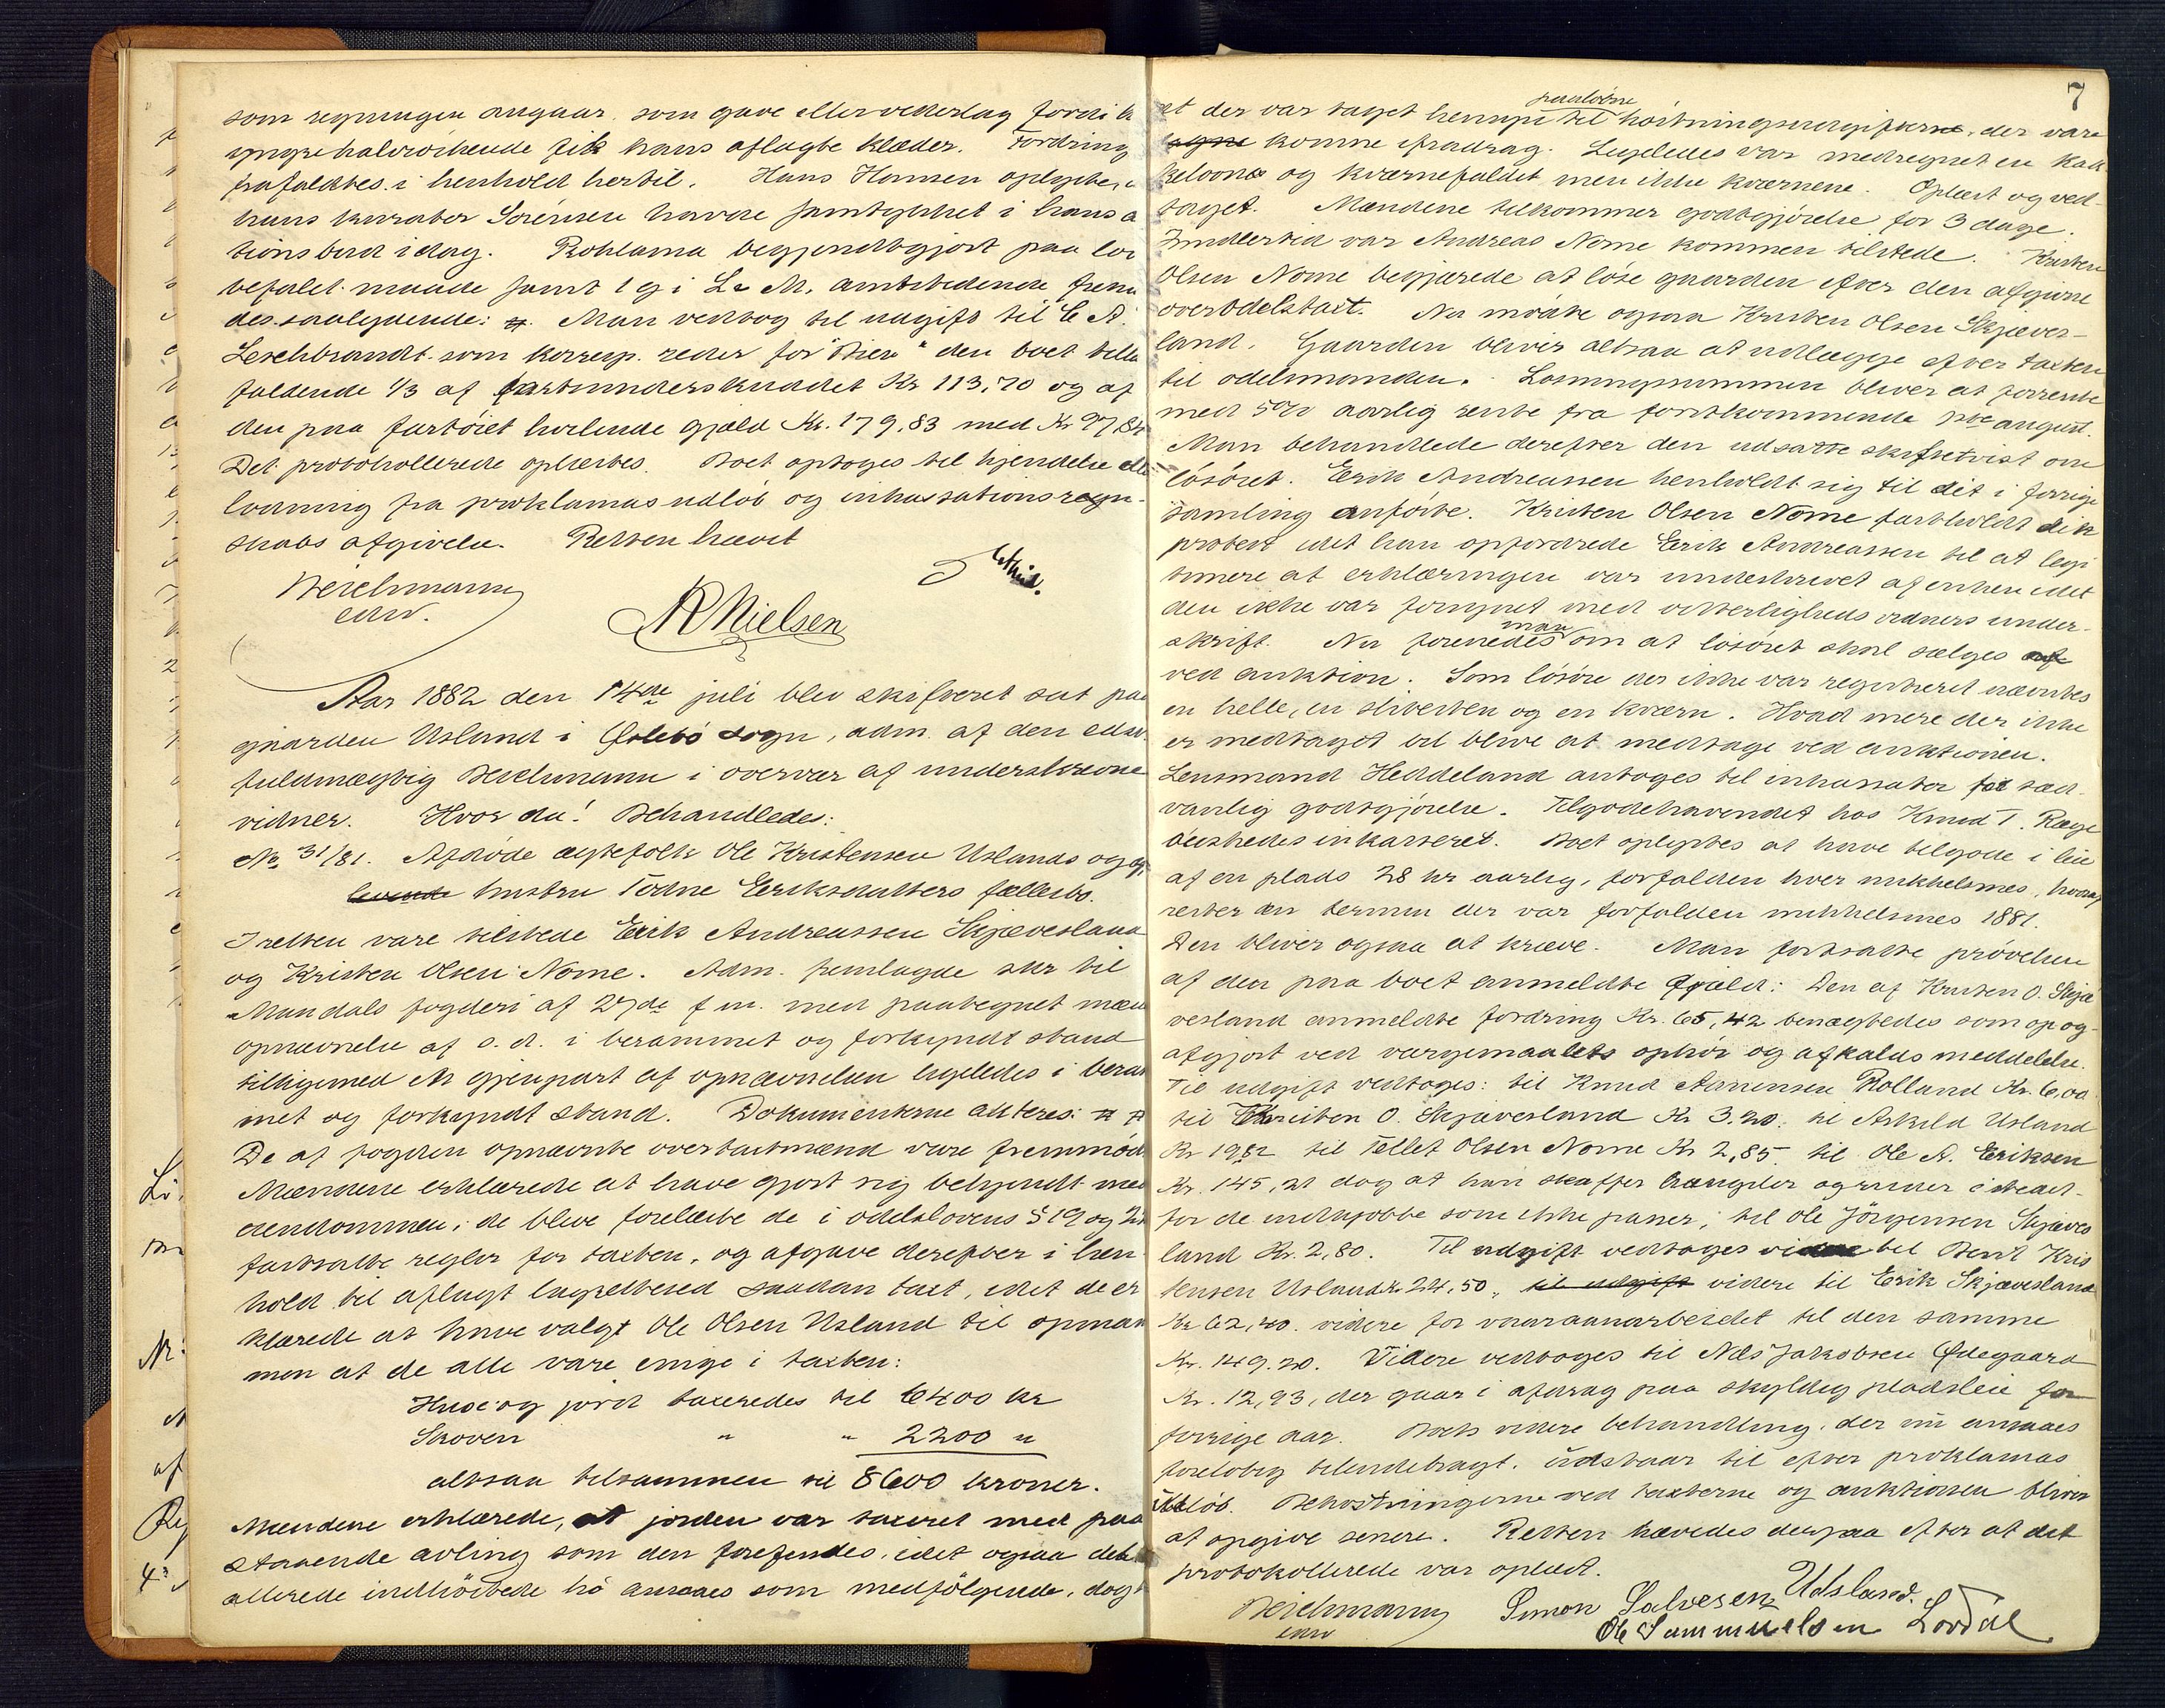 som regningen angaar som gave eller vederlag fordi h
yngre halvvoxende fik hans aflagte klæder. Fordring
frafaldtes i henhold hertil. Hans Hansen oplyste, a
hans kurator Sörensen havde samtykket i hans a
tionsbud idag. Proklama begjendtgjort paa lov
befalet maade samt 1 g i L. & M. amtstidende frem
des. saalydende: Man vedtog til udgift til C A.
som korresp. reder for "Brisen" den boet tilla
faldende 1/3 af fartsunderskudet Kr 113,70 og af
den paa fartöiet hvilende gjæld Kr. 179,83 med Kr 27,84
Det protokollerede oplæstes. Boet optoges til kjendelse elle
lodning fra proklamas udløb og inkassationsregn-
skabs afgivelse. Retten hævet
Beichmann
edsv.
N Nielsen
Aar 1882 den 14de juli blev skifteret sat paa
gaarden Usland i Øslebö sogn, adm. af den edsv.
fuldmægtig Beichmann i overvær af underskrevne
vidner. Hvor da! Behandledes:
No 31/81. Afdöde ægtefolk Ole Kristensen Uslands og
levende hustru Todne Eriksdatters fællesbo.
I retten vare tilstede Erik Andreassen Skjævesland
og Kristen Olsen Nome. Adm. fremlagde skr til
Mandals fogderi af 27de f m. med paategnet mæn
opnævnelse af s. d. i berammet og forkyndt stand
tilligemed en gjenpart af opnævnelsen ligeledes i beram
met og forkyndt stand. Dokumenterne akteres:
De af fogden opnævnte overtaxtmænd vare fremmöd
Mændene erklærede at have gjort sig bekjendt med
eiendommen; de bleve forelæste de i odelslovens § 19 og
fastsatte regler for taxten, og afgave derefter i hen
hold til aflagt lagrettesed saadan taxt, idet de er
klærede at have valgt Ole Olsen Usland til opman
men at de alle vare enige i taxten:
Huse og jord taxeredes til 6400 kr
Skoven " " 2200 "
altsaa tilsammen til 8600 kroner.
Mændene erklærede, at jorden var taxeret med paa
staaende avling som den forefindes, idet ogsaa det
allerede indhöstede hö ansaaes som medfölgende, dog
7
et der var taget hensyn til paaløbne höstningsudgifterne, der vare
komne ifradrag. Ligeledes var medregnet en kak
kelovn og kværnefaldet men ikke kværnene. Oplæst og ved-
taget. Mændene tilkommer godtgjörelse for 3 dage.
Imidlertid var Andreas Nome kommen tilstede. Kristen
Olsen Nome begjærede at löse gaarden efter den afgivne
overodelstaxt. Nu mödte ogsaa Kristen Olsen Skjæves-
land. Gaarden bliver altsaa at udlægge efter taxten
til odelsmanden. Løsningssummen bliver at forrente
med 5% aarlig rente fra førstkommende 1ste august.
Man behandlede derefter den udsatte skiftetvist om
lösöret. Erik Andreassen henholdt sig til det i forrige
samling anförte. Kristen Olsen Nome fastholdt sin
protest idet han opfordrede Erik Andreassen til at legi
timere at erklæringen var underskrevet af enken idet
den ikke var forsynet med vitterligheds vidners under-
skrift. Nu forenedes man om at lösöret skal sælges
ved auktion. Som lösöre der ikke var registreret nævntes
en helle, en slibesten og en kværn. Hvad mere der ikke
er medtaget vil blive at medtage ved auktionen.
Lensmand Heddeland antoges til inkassator for sæd-
vanlig godtgjörelse. Tilgodehavendet hos Knud T. Rage
inkasseret. Boet oplystes at have tilgode i leie
af en plads 28 kr aarlig, forfalden hver mikkelsmes, hvoraf
rester en termin der var forfalden mikkelsmes 1881.
Den bliver ogsaa at kræve. Man fortsatte prövelsen
af den paa boet anmeldte gjæld: Den af Kristen O. Skjæ
vesland anmeldte fordring Kr. 65,42 benægtedes som op og
afgjort ved vergemaalets ophör og afkalds meddelelse.
Til udgift vedtoges: til Knud Rolland Kr. 6,00
til Kristen O. Skjævesland Kr 3.20, til Askild Usland
Kr 19,82 til Tellef Olsen Nome Kr 2,85 til Ole A. Eriksen
Kr. 145,21 dog at han skaffer hængsler og ruder istedet-
for de indkjöbte som ikke passer; til Ole Jörgensen Skjæves
land Kr. 2,80. Til udgift vedtoges til Berit Kris
tensen Usland kr. 24,50, til udgift videre til Erik Skjævesland
Kr 62,40. videre for vaaraanarbeidet til den samme
Kr. 149.20. Videre vedtoges til Nils Jakobsen Ødegaard
Kr. 12,93, der gaar i afdrag paa skyldig pladsleie for
forrige aar. Boets videre behandling, der nu ansaaes
foreløbig tilendebragt, udstaar til efter proklamas
udløb. Bekostningerne ved taxterne og auktionen bliver
at opgive senere. Retten hævedes derpaa efter at det
protokollerede var oplæst.
Beichmann Simon Salvesen Udsland.
edsv Ole Sammuelsen Lovdal